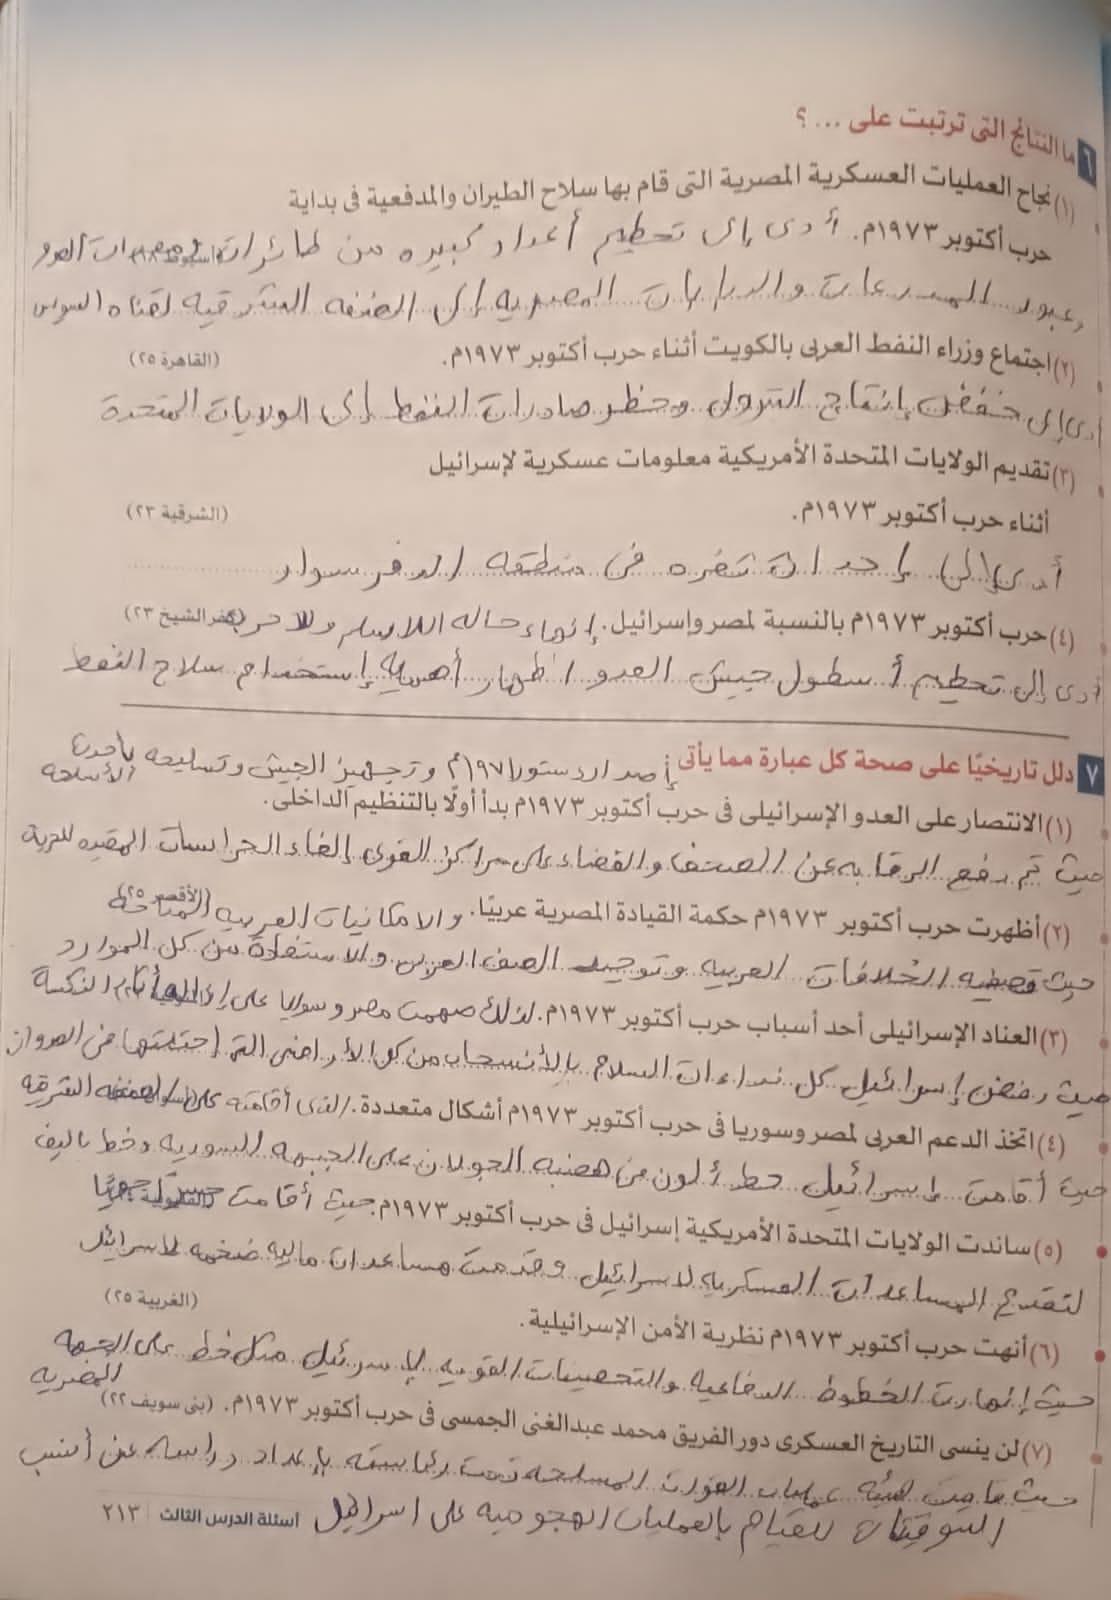 ٦ ما النتائج التى ترتبت على ... ؟
(١) نجاح العمليات العسكرية المصرية التى قام بها سلاح الطيران والمدفعية فى بداية
حرب أكتوبر ١٩٧٣م. أدى إلى تحطيم أعداد كبيره من طائرات العدو
وعبور المدرعات والدبابات المصريه إلى الضفه الشرقيه لقناه السويس
(٢) اجتماع وزراء النفط العربى بالكويت أثناء حرب أكتوبر ١٩٧٣م. (القاهرة ٢٥)
أدى إلى خفض إنتاج البترول وحظر صادرات النفط إلى الولايات المتحدة
(٣) تقديم الولايات المتحدة الأمريكية معلومات عسكرية لإسرائيل
أثناء حرب أكتوبر ١٩٧٣م. (الشرقية ٢٣)
أدى إلى إحداث ثغره فى منطقه الدفرسوار
(٤) حرب أكتوبر ١٩٧٣م بالنسبة لمصر وإسرائيل. إنهاء حاله اللاسلم واللا حرب (كفر الشيخ ٢٣)
أدى إلى تحطيم أسطول جيش العدو اظهار أهميه إستخدام سلاح النفط
٧ دلل تاريخيًا على صحة كل عبارة مما يأتى أصدار دستور ١٩٧١م وتجهيز الجيش وتسليحه بأحدث الأسلحه
(١) الانتصار على العدو الإسرائيلى فى حرب أكتوبر ١٩٧٣م بدأ أولًا بالتنظيم الداخلى.
حيث تم رفع الرقابه عن الصحف والقضاء على مراكز القوى إلغاء الحراسات المقيده للحرية
(٢) أظهرت حرب أكتوبر ١٩٧٣م حكمة القيادة المصرية عربيًا. والامكانيات العربيه المتاحة (الأقصر ٢٥)
حيث تصفيه الخلافات العربيه وتوحيد الصف العربى والاستفادة من كل الموارد
(٣) العناد الإسرائيلى أحد أسباب حرب أكتوبر ١٩٧٣م. لذلك صممت مصر وسوريا على النكسة
حيث رفض إسرائيل كل نداءات السلام بالأنسحاب من كل الأراضى التى إحتلتها فى العدوان
(٤) اتخذ الدعم العربى لمصر وسوريا فى حرب أكتوبر ١٩٧٣م أشكال متعددة. الذى أقامته على الضفه الشرقيه
حيث أقامت إسرائيل خط ألون من هضبه الجولان على الجبهه السوريه وخط بارليف
(٥) ساندت الولايات المتحدة الأمريكية إسرائيل فى حرب أكتوبر ١٩٧٣م. حيث أقامت جسرًا جويًا
لتقديم المساعدات العسكريه لاسرائيل وقدمت مساعدات ماليه ضخمه لاسرائيل
(الغربية ٢٥)
(٦) أنهت حرب أكتوبر ١٩٧٣م نظرية الأمن الإسرائيلية.
حيث إنهارت الخطوط الدفاعيه والتحصينات القويه لإسرئيل مثل خط على الجبهه المصريه
(٧) لن ينسى التاريخ العسكرى دور الفريق محمد عبدالغنى الجمسى فى حرب أكتوبر ١٩٧٣م. (بنى سويف ٢٢)
حيث قامت هيئه عمليات القوات المسلحه تحت رئاسته بإعداد دراسه عن أنسب
التوقيتات للقيام بالعمليات الهجوميه على اسرائيل
أسئلة الدرس الثالث ٢١٣